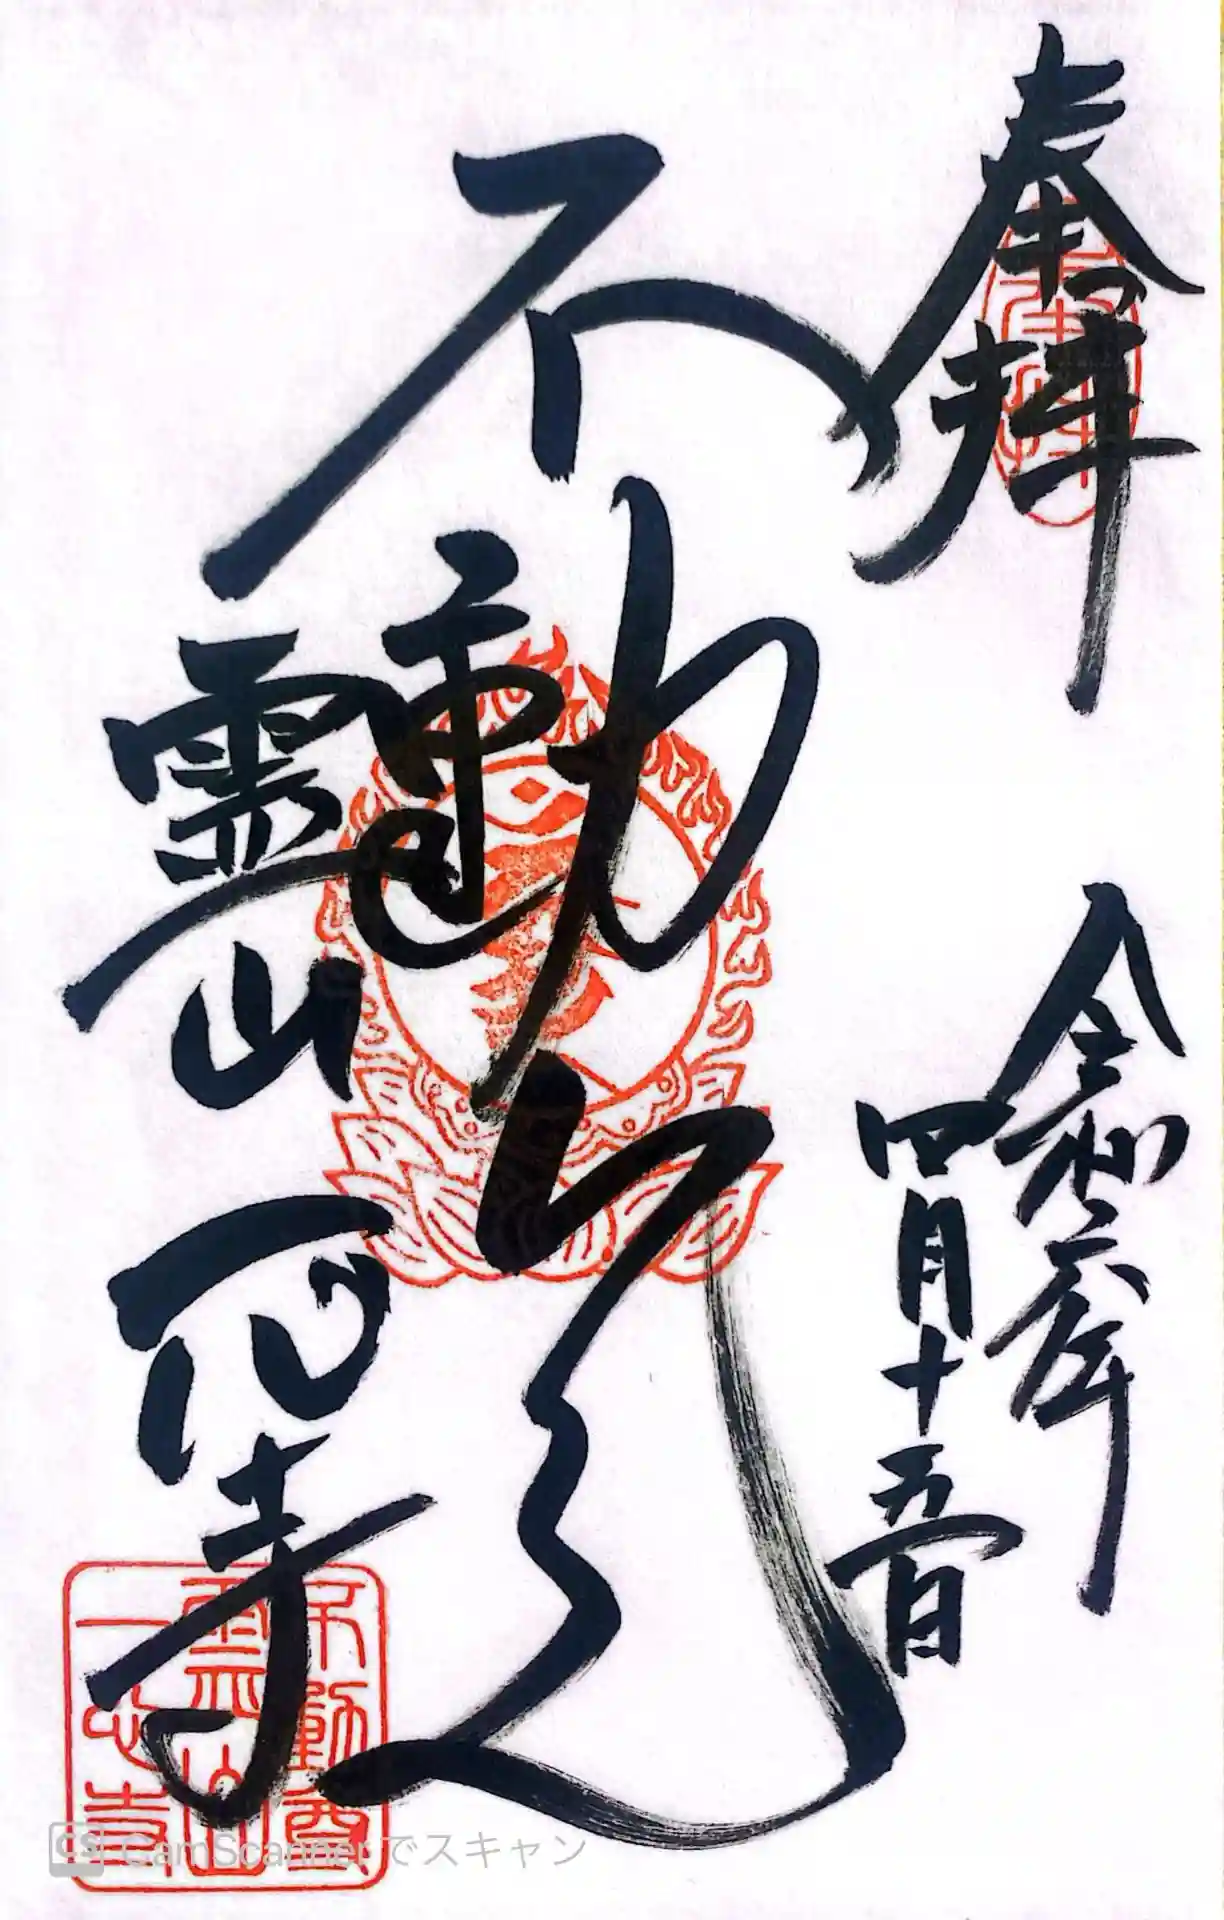 奉拝
奉拝
令和六年
四月十五日
不動
霊山
一心寺
不動尊
霊山
一心寺
CS CamScannerでスキャン